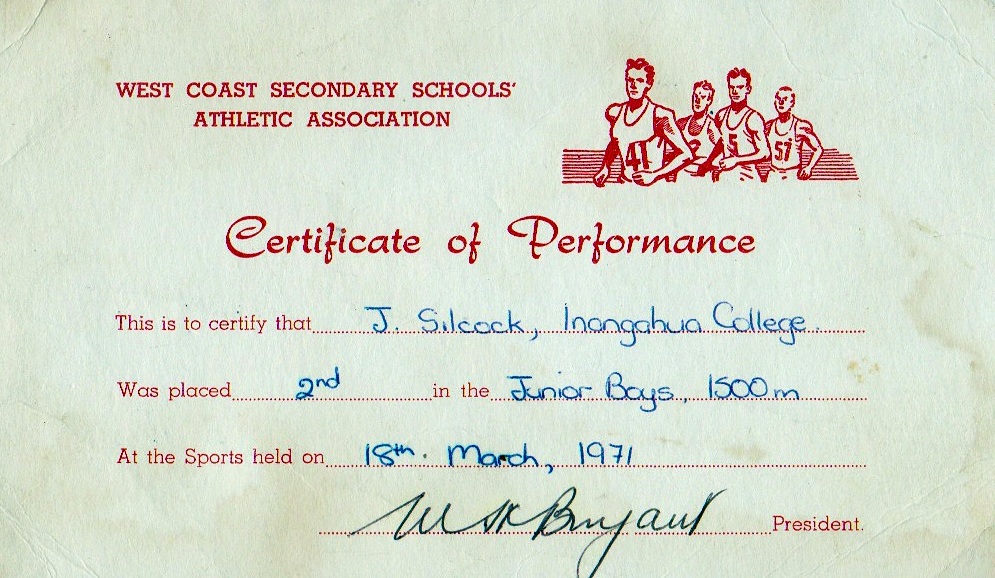 WEST COAST SECONDARY SCHOOLS'
ATHLETIC ASSOCIATION
41 2 5 57
Certificate of Performance
This is to certify that J. Silcock, Inangahua College.
Was placed 2nd in the Junior Boys, 1500m
At the Sports held on 18th. March, 1971
Bryant President.